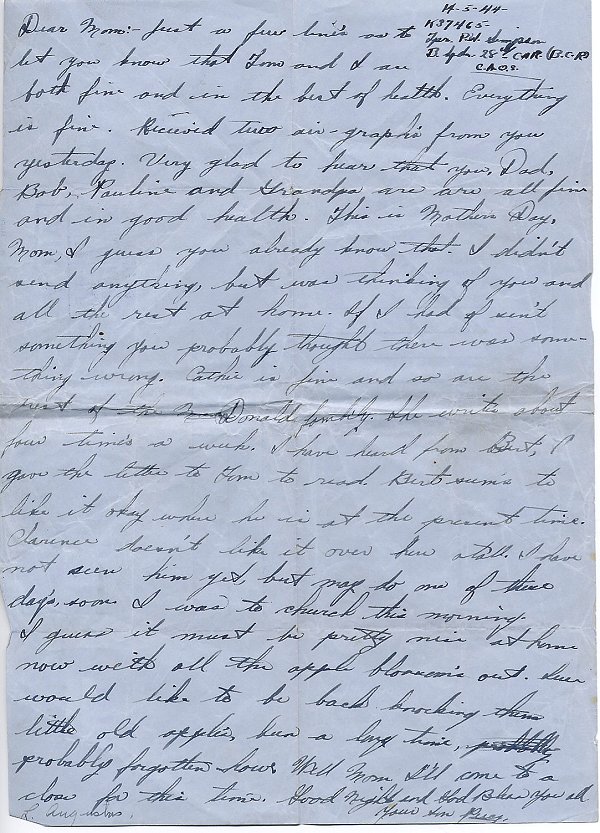 14-5-44-
K37465-
Tpr. Rd. Simpson
B Sqdn 28th CAR (B.C.R)
C.A.O.S.
Dear Mom:- Just a few line's so to
let you know that Tom and I are
both fine and in the best of health. Everything
is fine. Received two air-graph's from you
yesterday. Very glad to hear that you, Dad,
Bob, Pauline and Grandpa are are all fine
and in good health. This is Mothers Day,
Mom, I guess you already know that. I didn't
send anything, but was thinking of you and
all the rest at home. If I had of sin't
something you probably thought there was some-
thing wrong. Cathie is fine and so are the
rest of the Donald family. She write about
four time's a week. I have heard from Bert, I
gave the letter to Tom to read. Bert sum's to
like it okay where he is at the present time.
Clarence doesn't like it over here atall. I have
not seen him yet, but may do one of these
day's, soon. I was to church this morning.
I guess it must be pretty nice at home
now with all the apple blossom's out. Sure
would like to be back knocking them
little old apples, been a long time,
probably forgotten how. Well Mom, I'll come to a
close for this time. Good Night and God Bless You all.
L. Angusins. Your Son Percy.